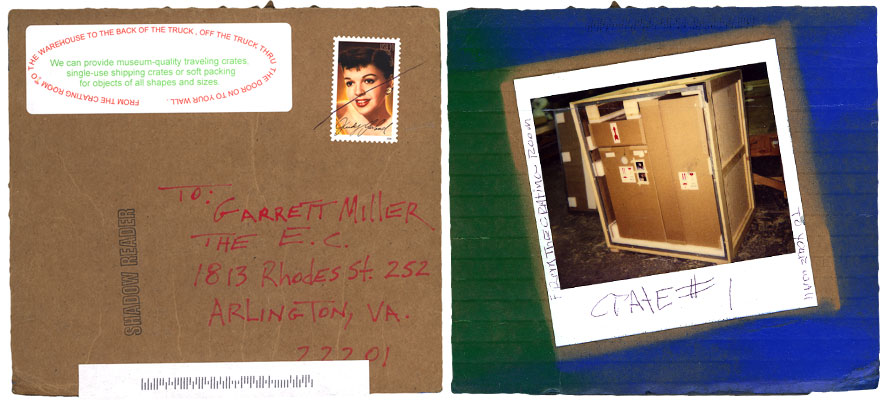 FROM THE CRATING ROOM TO THE WAREHOUSE TO THE BACK OF THE TRUCK, OFF THE TRUCK THRU THE DOOR ON TO YOUR WALL.
We can provide museum-quality traveling crates,
single-use shipping crates or soft packing
for objects of all shapes and sizes
Judy Garland
SHADOW READER
TO:
GARRETT MILLER
THE E.C.
1813 Rhodes St. 252
ARLINGTON, VA.
22201
FROM THE CRATING ROOM
TO YOUR WALL
CRATE # 1